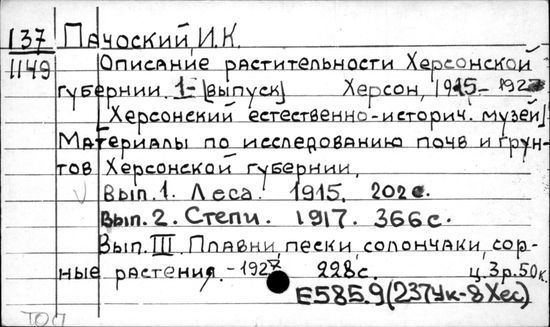 137 Пачоский, И.К.
1149 Описание растительности Херсонской
губернии. 1-[выпуск] Херсон, 1915-1927
Херсонский естественно-историч. музей]
Материалы по исследованию почв и грун-
тов Херсонской губернии,
Вып. 1. Леса. 1915. 202 с.
Вып. 2. Степи. 1917. 366 с.
Вып. III. Плавни, пески, солончаки, сор-
ные растения. -1927 228с. ц. 3р.50к.
Е585.9(237Ук-8Хес)